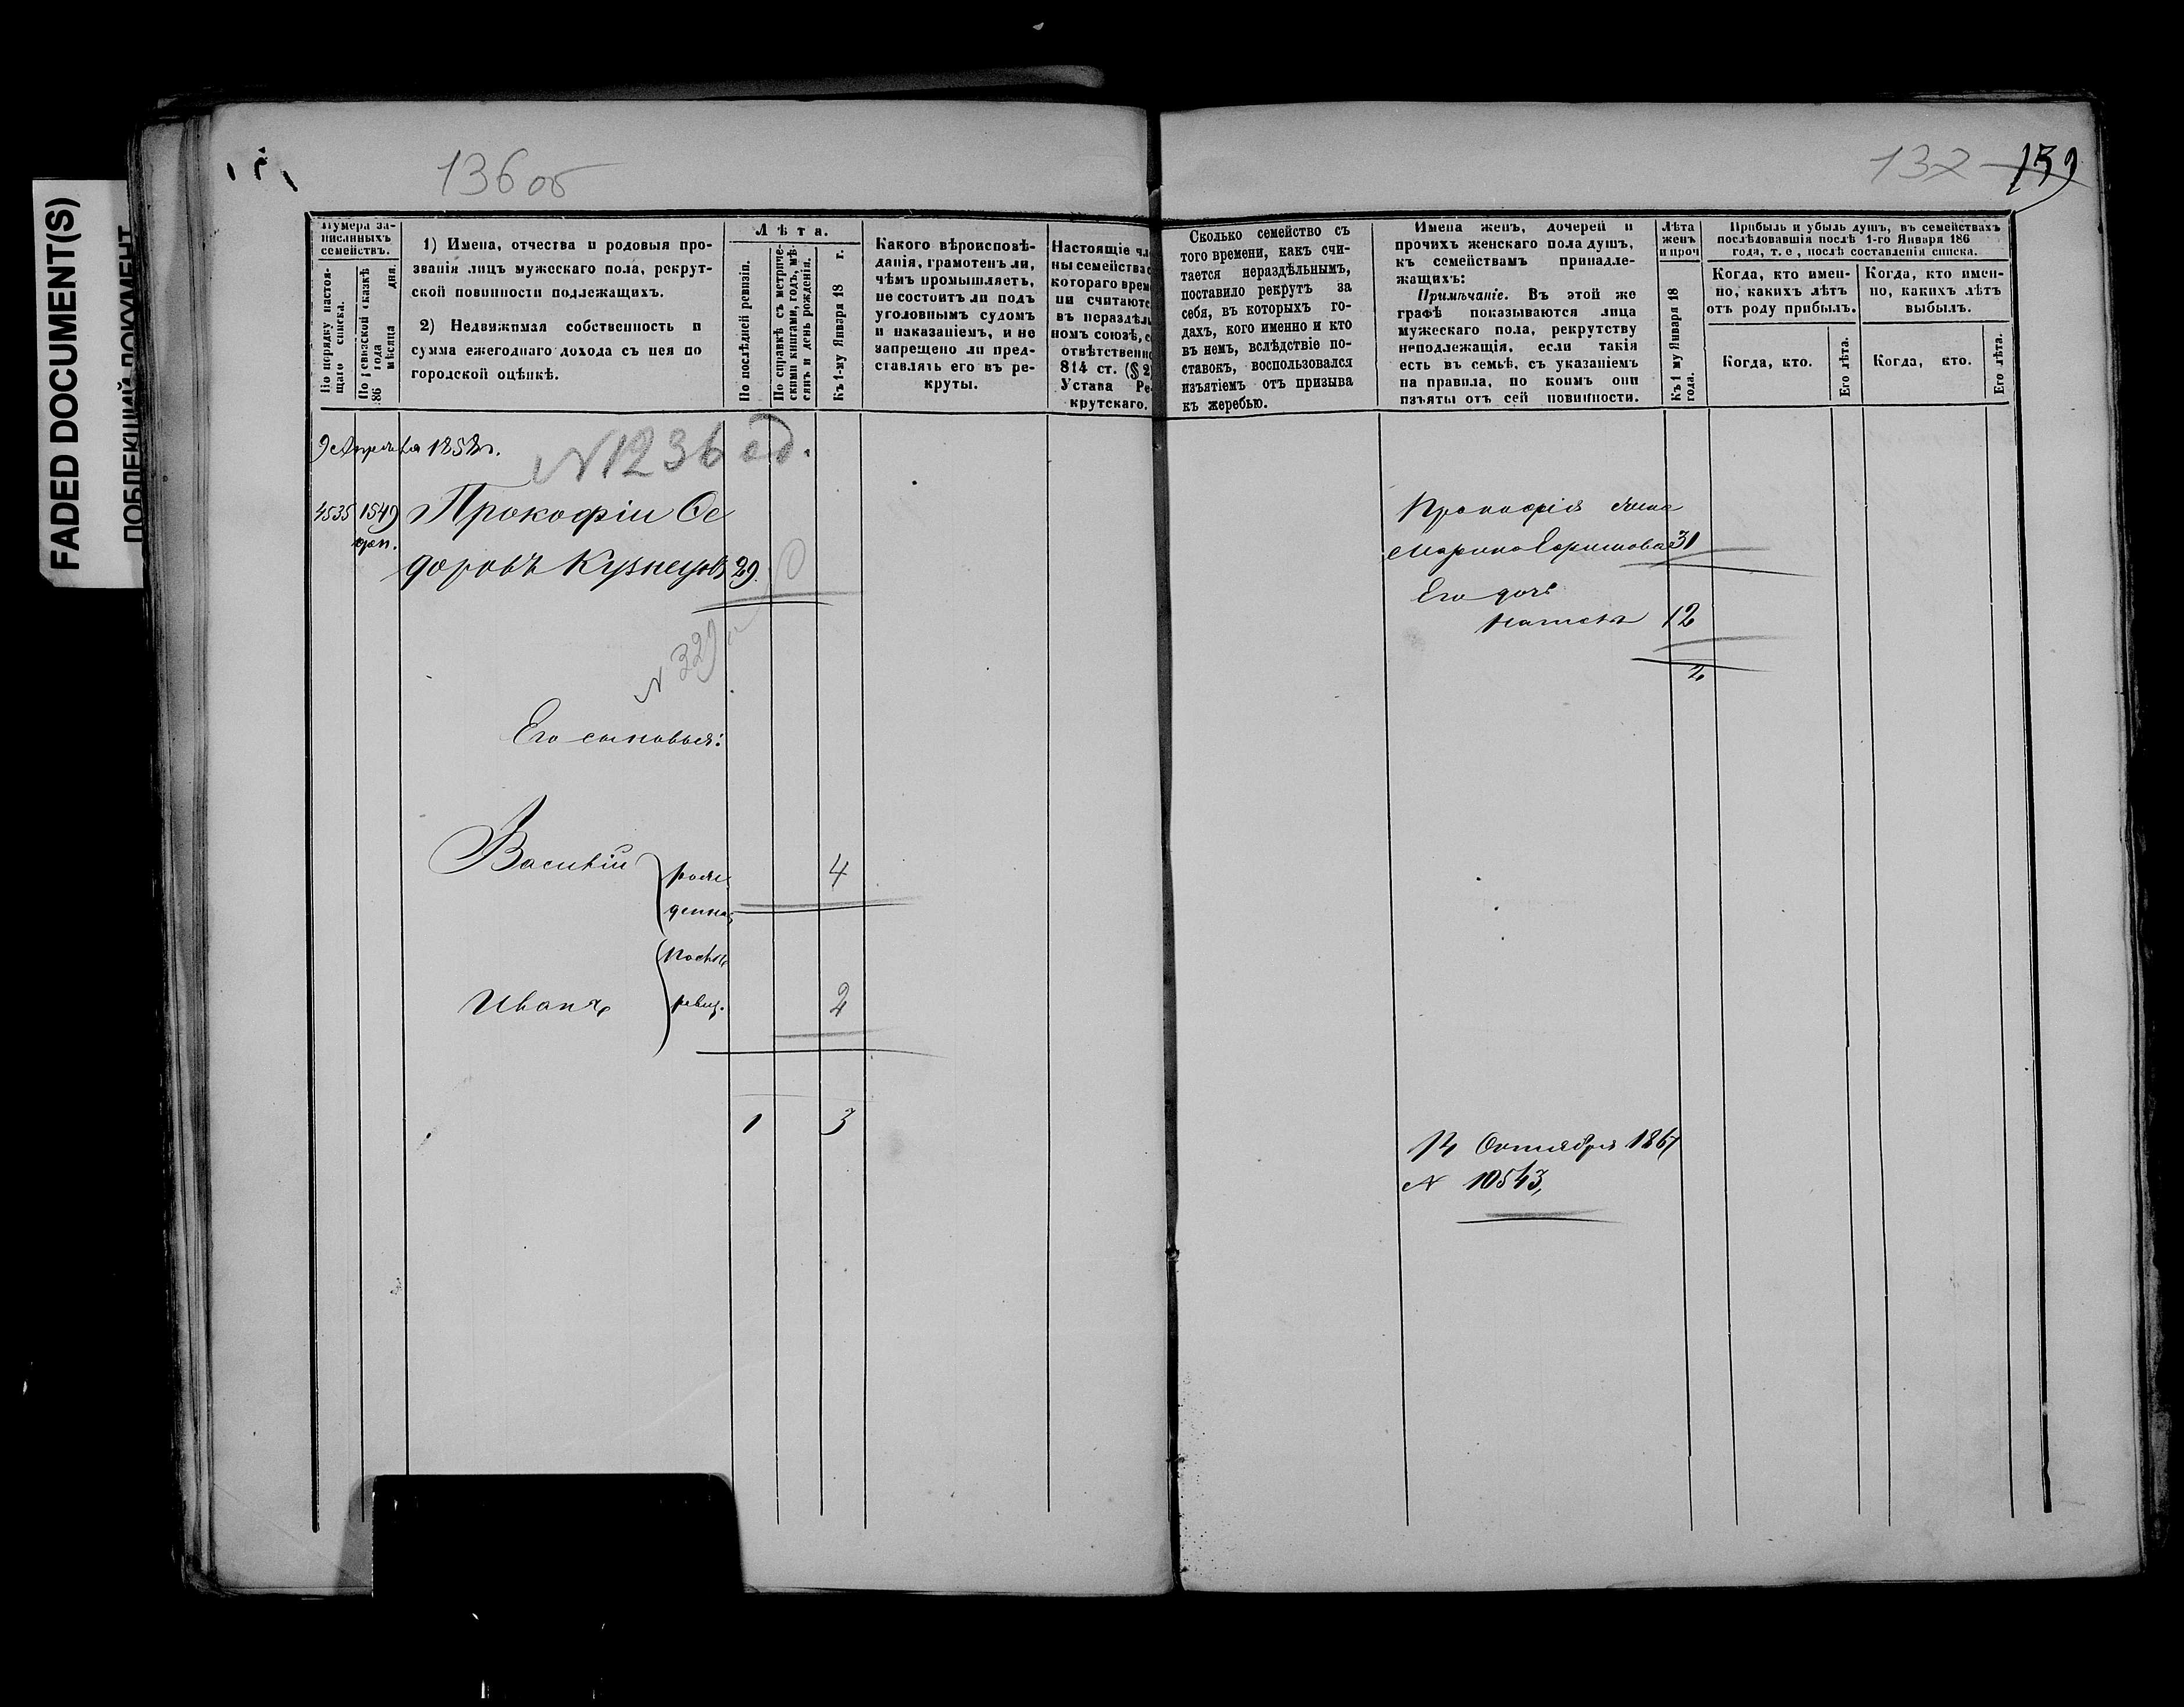 FADED DOCUMENT(S)
ПОБЛЕКШИЙ ДОКУМЕНТ
136 об
Нумера за-
писанныхъ
семействъ.
По порядку настоя-
щаго списка.
По ревизской сказкѣ
186 года мѣсяца дня.
1) Имена, отчества и родовыя про-
званія лицъ мужескаго пола, рекрут-
ской повинности подлежащихъ.
2) Недвижимая собственность и
сумма ежегоднаго дохода съ нея по
городской оцѣнкѣ.
Лѣта.
По послѣдней ревизіи.
По справкѣ съ метриче-
скими книгами, годъ, мѣ-
сяцъ и день рожденія.
Къ 1-му Января 18 г.
Какого вѣроисповѣ-
данія, грамотенъ ли,
чѣмъ промышляетъ,
не состоитъ ли подъ
уголовнымъ судомъ
и наказаніемъ, и не
запрещено ли пред-
ставлять его въ ре-
круты.
Настоящіе чле
ны семейства с
котораго врем
ни считаютс
въ нераздѣл
номъ союзѣ, с
отвѣтственно
814 ст. (§ 2
Устава Ре-
крутскаго.
9 Апрѣля 1858 г.
N 1236 ед.
4535 1549 Прокофій Ѳе
доровъ Кузнецовъ 29.
N 329
Его сыновья:
Василій рож- 4
денна
послѣ
Иванъ ревиз. 2
1 3
137 139
Сколько семейство съ
того времени, какъ счи-
тается нераздѣльнымъ,
поставило рекрутъ за
себя, въ которыхъ го-
дахъ, кого именно и кто
въ немъ, вслѣдствіе по-
ставокъ, воспользовался
изъятіемъ отъ призыва
къ жеребью.
Имена женъ, дочерей и
прочихъ женскаго пола душъ,
къ семействамъ принадле-
жащихъ:
Примѣчаніе. Въ этой же
графѣ показываются лица
мужескаго пола, рекрутству
неподлежащія, если такія
есть въ семьѣ, съ указаніемъ
на правила, по коимъ они
изъяты отъ сей повинности.
Лѣта
женъ
и проч
Къ 1 му Января 18
года.
Прибыль и убыль душъ, въ семействахъ
послѣдовавшія послѣ 1-го Января 186
года, т. е, послѣ составленія списка.
Когда, кто имен-
но, какихъ лѣтъ
отъ роду прибылъ.
Когда, кто.
Его лѣта.
Когда, кто имен-
но, какихъ лѣтъ
выбылъ.
Когда, кто.
Его лѣта.
Прокофія жена
Марина Ефимова 31
Его дочь
12
2
14 Октября 1867
N 10543,